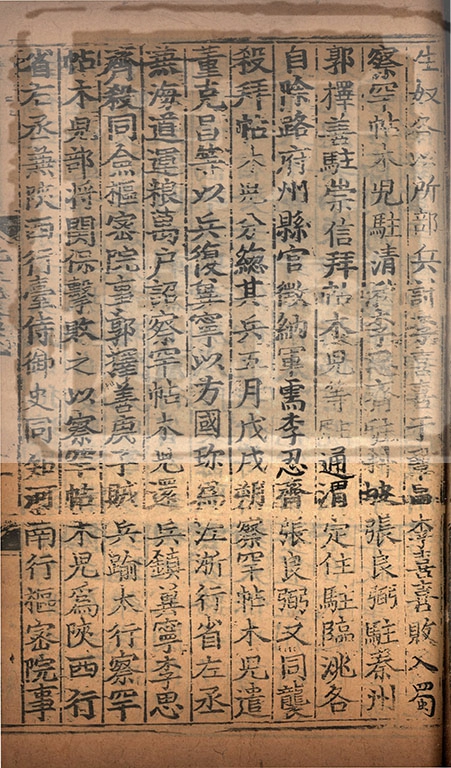 生奴各以所部兵討李喜喜于鞏昌李喜喜敗入蜀
察罕帖木兒駐清湫李思齊駐斜坡張良弼駐秦州
郭擇善駐崇信拜帖木兒等駐通渭定住駐臨洮各
自除路府州縣官徵納軍需李思齊張良弼又同襲
殺拜帖木兒分緫其兵五月戊戌朔察罕帖木兒遣
董克昌等以兵復冀寧以方國珎爲江浙行省左丞
兼海道運粮萬戶詔察罕帖木兒還兵鎮冀寧李思
齊殺同僉樞密院事郭擇善庚子賊兵踰太行察罕
帖木兒部將関保擊敗之以察罕帖木兒爲陝西行
省左丞兼陝西行臺侍御史同知河南行樞密院事